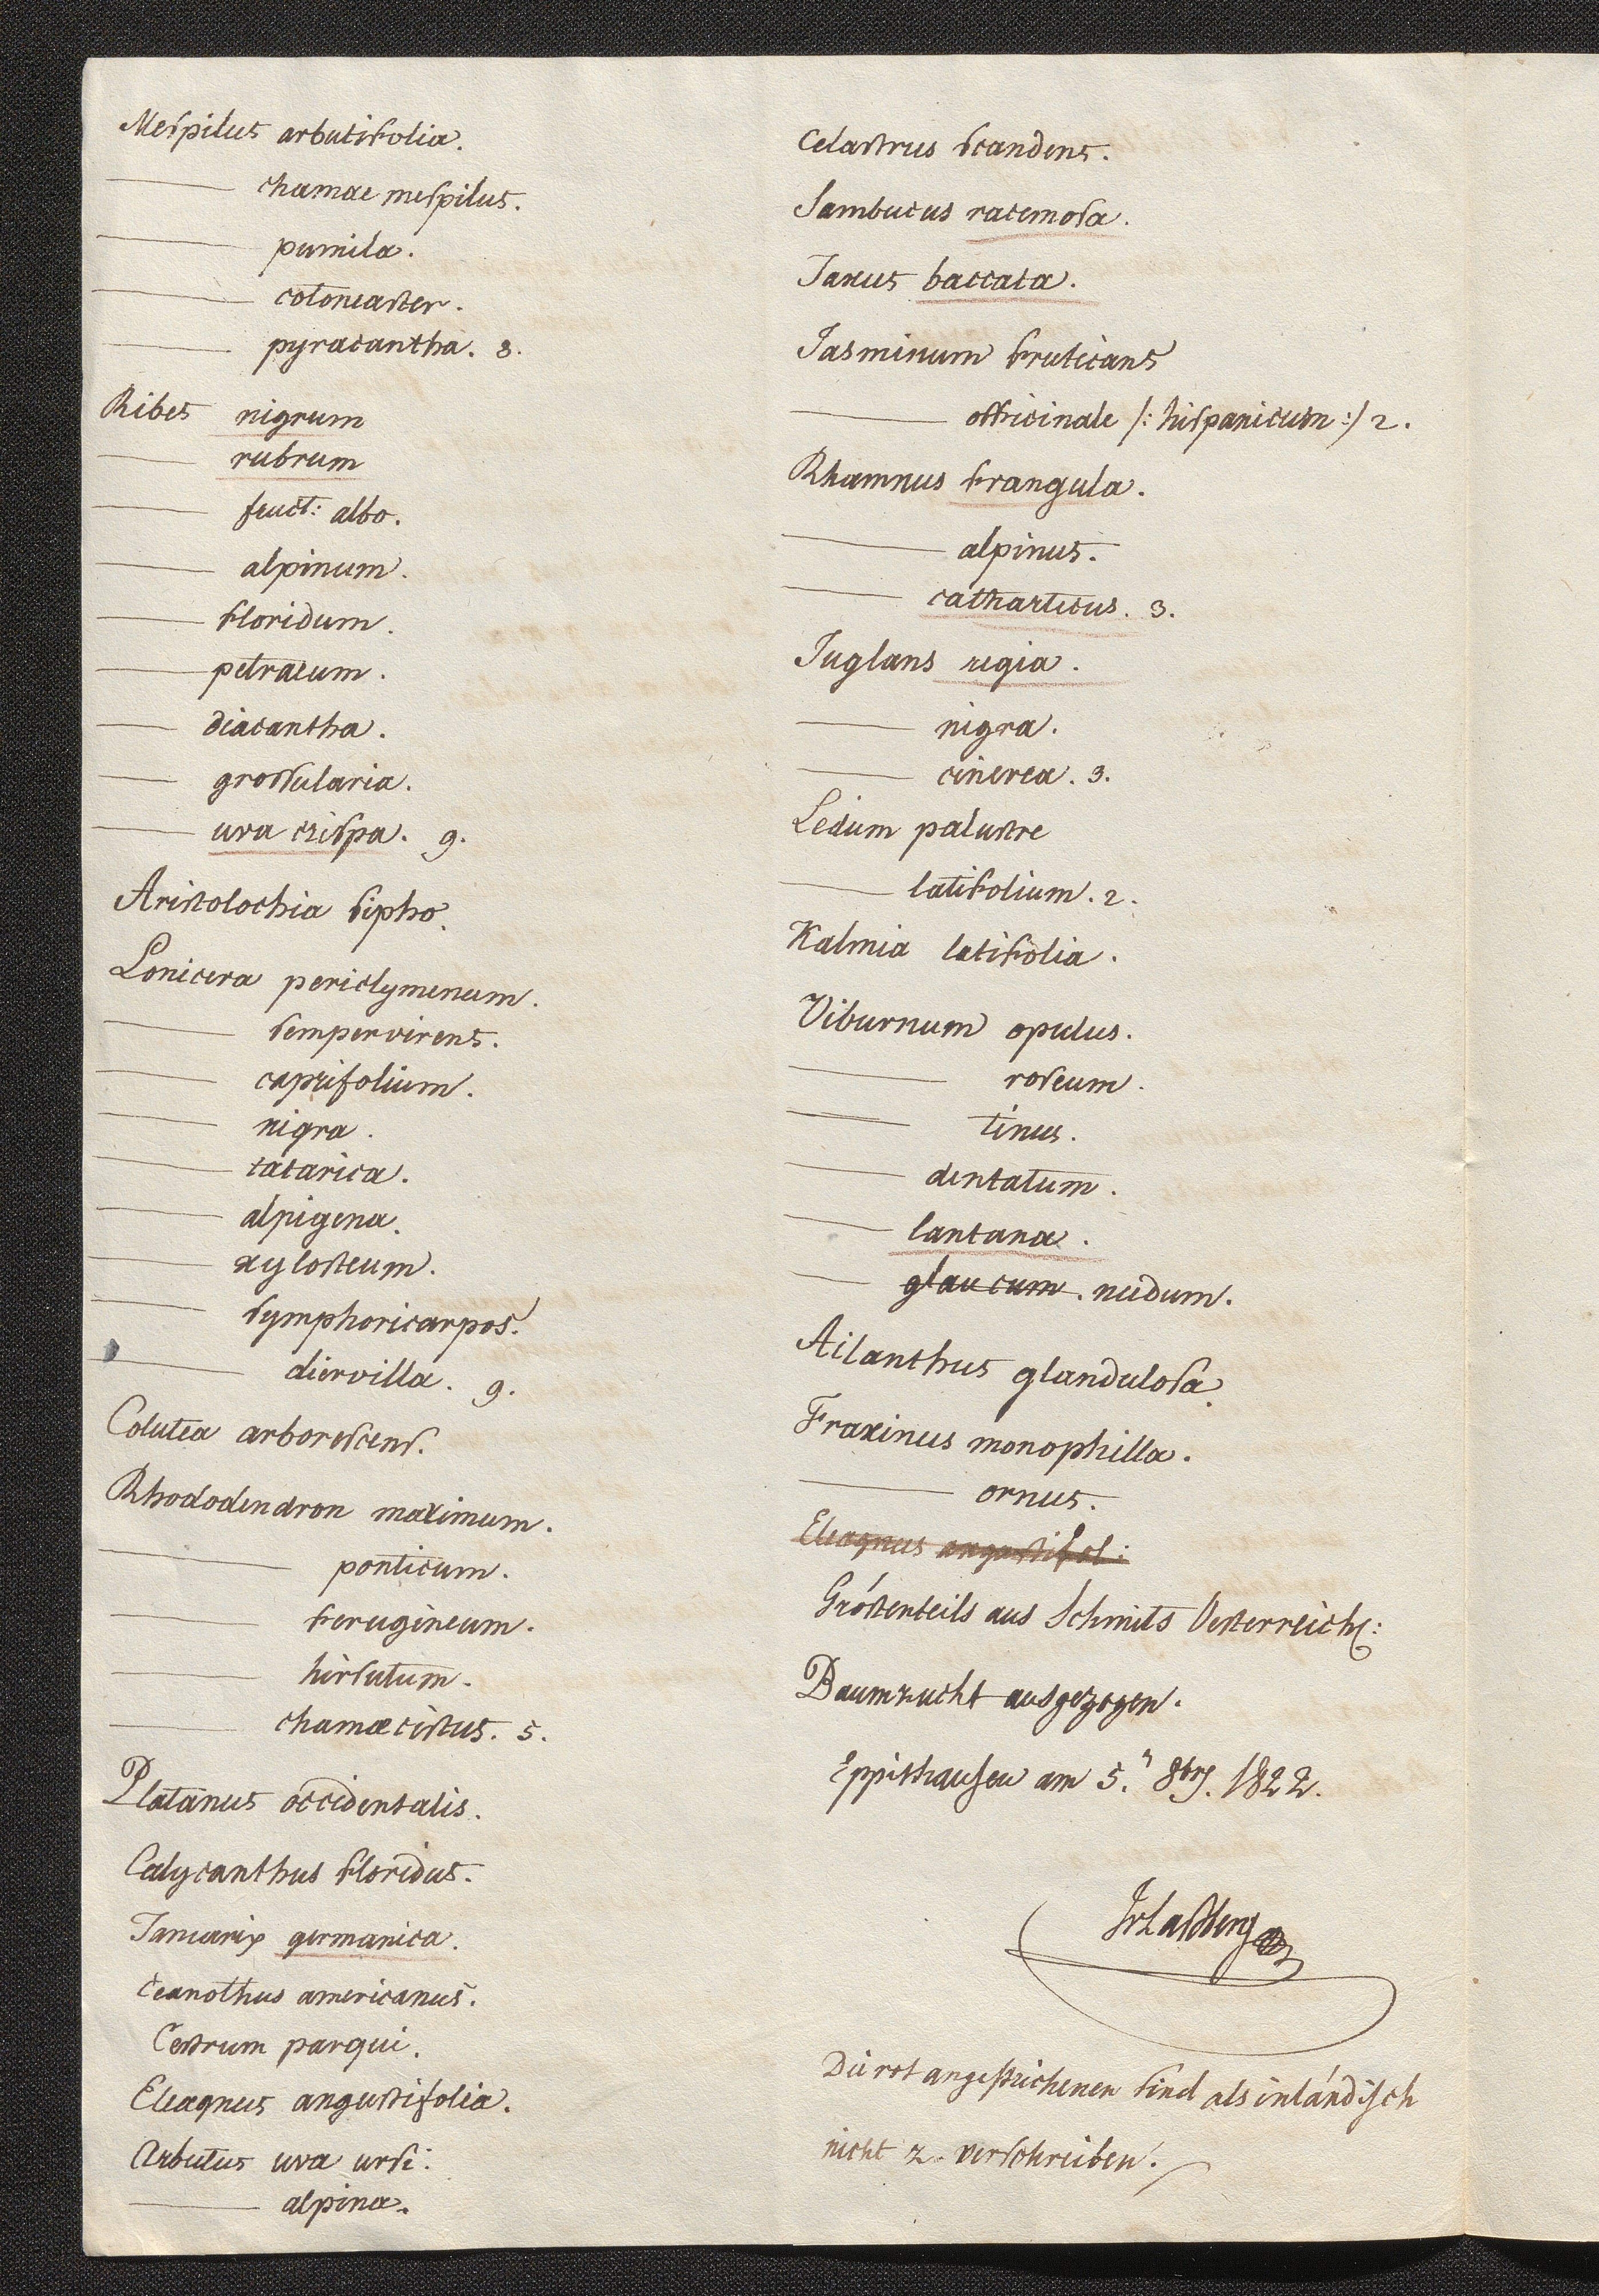 Mespilus arbutifolia.
—— chamae mespilus.
—— pumila.
—— cotoneaster.
—— pyracantha. 8.
Ribes nigrum
—— rubrum
—— fruct: albo.
—— alpinum.
—— floridum.
—— petraeum.
—— diacantha.
—— grossularia.
—— uva crispa. 9.
Aristolochia sipho.
Lonicera periclymenum.
—— sempervirens.
—— caprifolium.
—— nigra.
—— tatarica.
—— alpigena.
—— xylosteum.
—— symphoricarpos.
—— diervilla. 9.
Colutea arborescens.
Rhododendron maximum.
—— ponticum.
—— ferugineum.
—— hirsutum.
—— chamaecistus. 5.
Platanus occidentalis.
Calycanthus floridus.
Tamarix germanica.
Ceanothus americanus.
Cestrum parqui.
Eleagnus angustifolia.
Arbutus uva ursi.
—— alpina.
Celastrus scandens.
Sambucus racemosa.
Taxus baccata.
Jasminum fruticans
—— officinale /: hispanicum :/ 2.
Rhamnus frangula.
—— alpinus.
—— catharticus. 3.
Juglans regia.
—— nigra.
—— cinerea. 3.
Ledum palustre
—— latifolium. 2.
Kalmia latifolia.
Viburnum opulus.
—— roseum.
—— tinus.
—— dentatum.
—— lantana.
—— glaucum. nudum.
Ailanthus glandulosa.
Fraxinus monophilla.
—— ornus.
Eleagnus angustifol:
Gröstenteils aus Schmits Oesterreich:
Baumzucht ausgezogen.
Eppishausen am 5.n 8brs. 1822.
JvLaßberg
Die rot angestrichenen sind als inländisch
nicht z. verschreiben.